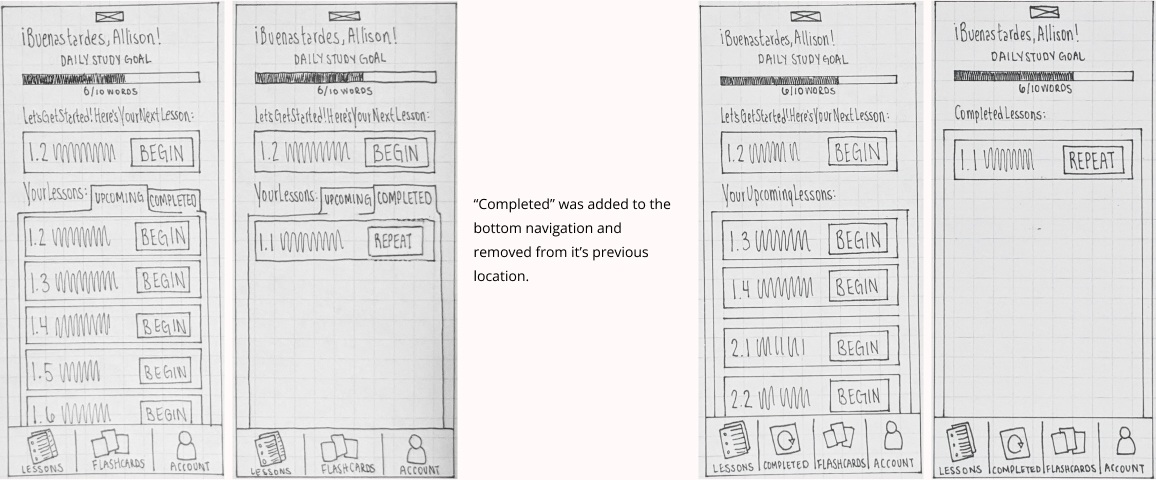 ¡Buenas tardes, Allison!
DAILY STUDY GOAL
6/10 WORDS
Let's Get Started! Here's Your Next Lesson:
1.2 BEGIN
Your Lessons: UPCOMING COMPLETED
1.2 BEGIN
1.3 BEGIN
1.4 BEGIN
1.5 BEGIN
1.6 BEGIN
LESSONS FLASHCARDS ACCOUNT
¡Buenas tardes, Allison!
DAILY STUDY GOAL
6/10 WORDS
Let's Get Started! Here's Your Next Lesson:
1.2 BEGIN
Your Lessons: UPCOMING COMPLETED
1.1 REPEAT
LESSONS FLASHCARDS ACCOUNT
“Completed” was added to the
bottom navigation and
removed from it’s previous
location.
¡Buenas tardes, Allison!
DAILY STUDY GOAL
6/10 WORDS
Let's Get Started! Here's Your Next Lesson:
1.2 BEGIN
Your Upcoming Lessons:
1.3 BEGIN
1.4 BEGIN
2.1 BEGIN
2.2 BEGIN
LESSONS COMPLETED FLASHCARDS ACCOUNT
¡Buenas tardes, Allison!
DAILY STUDY GOAL
6/10 WORDS
Completed Lessons:
1.1 REPEAT
LESSONS COMPLETED FLASHCARDS ACCOUNT